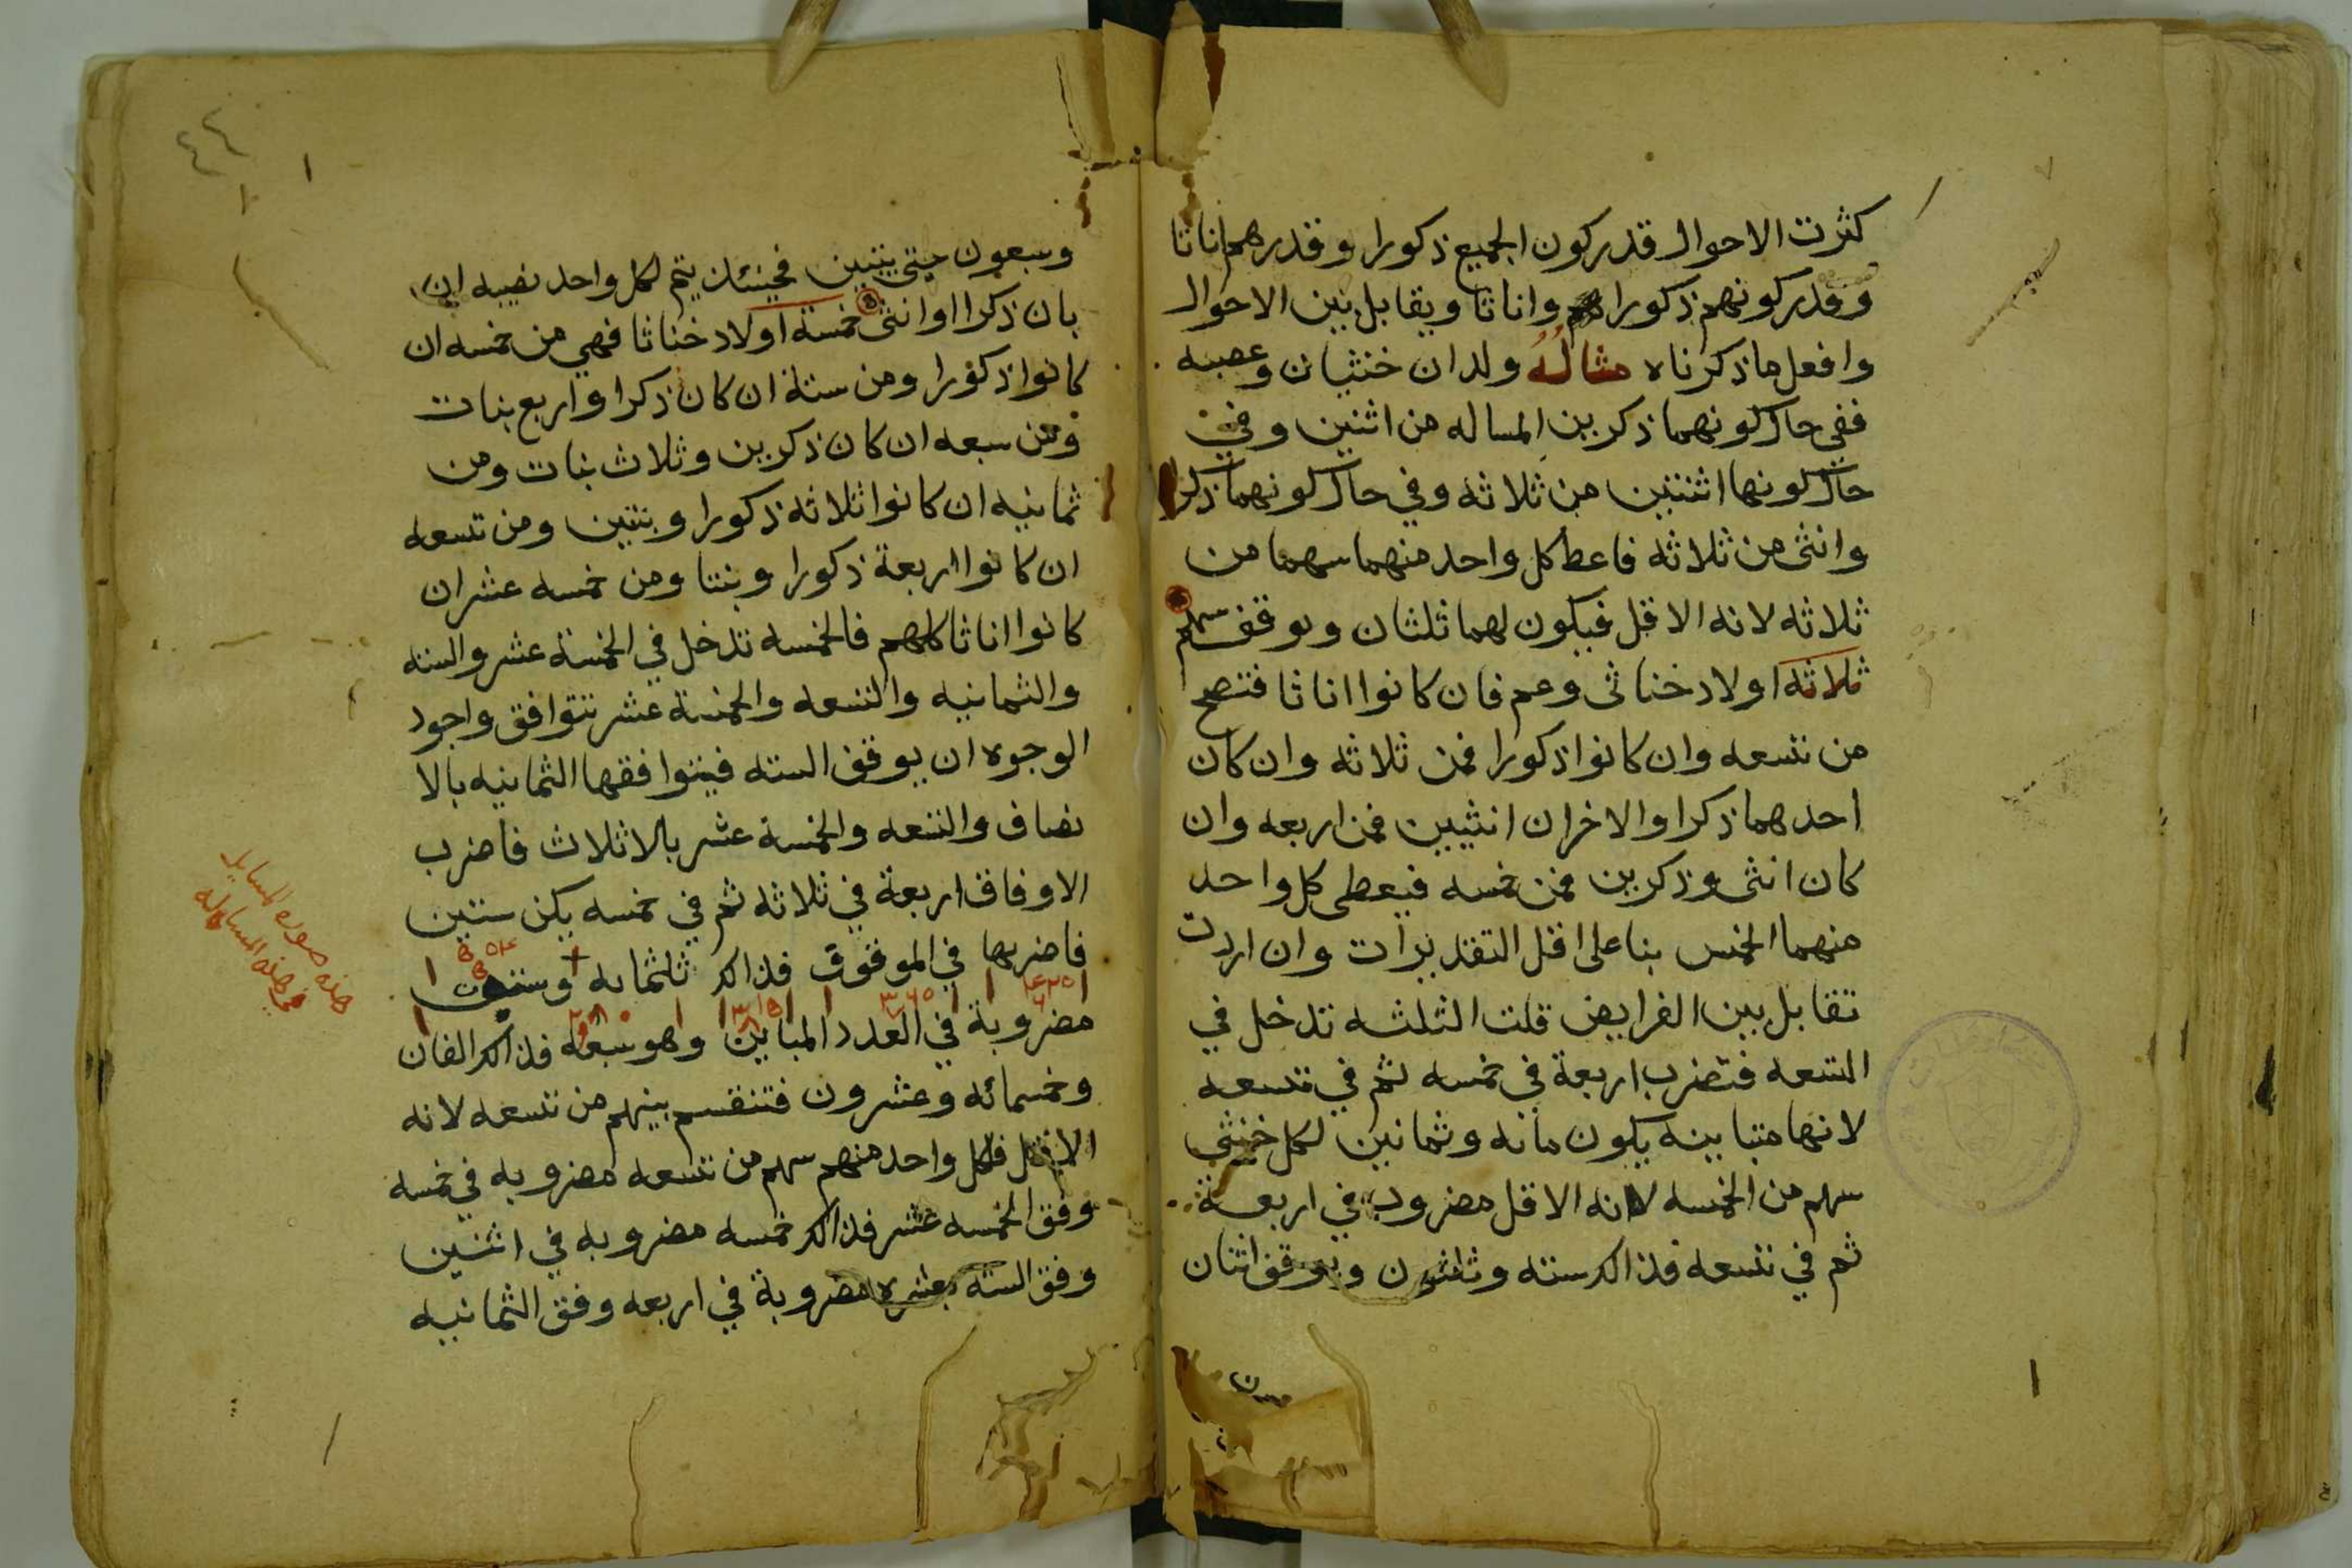 كثرت الاحوال قدر كون الجميع ذكورا وقدرهم اناثا
وقدر كونهم ذكورا واناثا ويقابل بين الاحوال
وافعل ما ذكرناه مثاله ولدان خنثيان وعصبه
ففي حال كونهما ذكرين المساله من اثنين وفي
حال كونها اثنتين من ثلاثه وفي حال كونهما ذكرا
وانثى من ثلاثه فاعط كل واحد منهما سهما من
ثلاثه لانه الاقل فيكون لهما ثلثان ويوقف سهم
ثلاثه اولاد خناثى وعم فان كانوا اناثا فتصح
من تسعه وان كانوا ذكورا فمن ثلاثه وان كان
احدهما ذكرا والاخران انثيين فمن اربعه وان
كان انثى وذكرين فمن خمسه فيعطى كل واحد
منهما الخمس بنا على اقل التقديرات وان اردت
تقابل بين الفرايض قلت الثلثه تدخل في
التسعه فتضرب اربعة في خمسه ثم في تسعه
لانها متباينه يكون مائه وثمانين لكل خنثى
سهم من الخمسه لانه الاقل مضروب في اربعة
ثم في تسعه فذالك سته وثلثون ويوقف اثنان
٤٤
وسبعون حتى يتبين فحينئذ يتم لكل واحد نصيبه ان
بان ذكرا او انثى خمسة اولاد خناثا فهي من خمسه ان
كانوا ذكورا ومن ستة ان كان ذكرا واربع بنات
ومن سبعه ان كان ذكرين وثلاث بنات ومن
ثمانيه ان كانوا ثلاثه ذكورا وبنتين ومن تسعه
ان كانوا اربعة ذكورا وبنتا ومن خمسه عشر ان
كانوا اناثا كلهم فالخمسه تدخل في الخمسة عشر والسته
والثمانيه والتسعه والخمسة عشر تتوافق واجود
الوجوه ان يوقف السته فيتوافقها الثمانيه بالا
نصاف والتسعه والخمسة عشر بالاثلاث فاضرب
الاوفاق اربعة في ثلاثه ثم في خمسه يكن ستين
فاضربها في الموقوف فذالك ثلثمايه وستون
مضروبة في العدد المباين وهو سبعه فذالك الفان
وخمسمائه وعشرون فتنقسم بينهم من تسعه لانه
الاقل فلكل واحد منهم سهم من تسعه مضروبه في خمسه
وفق الخمسه عشر فذالك خمسه مضروبه في اثنين
وفق السته بعشره مضروبة في اربعه وفق الثمانيه
هذه صورة المسايل